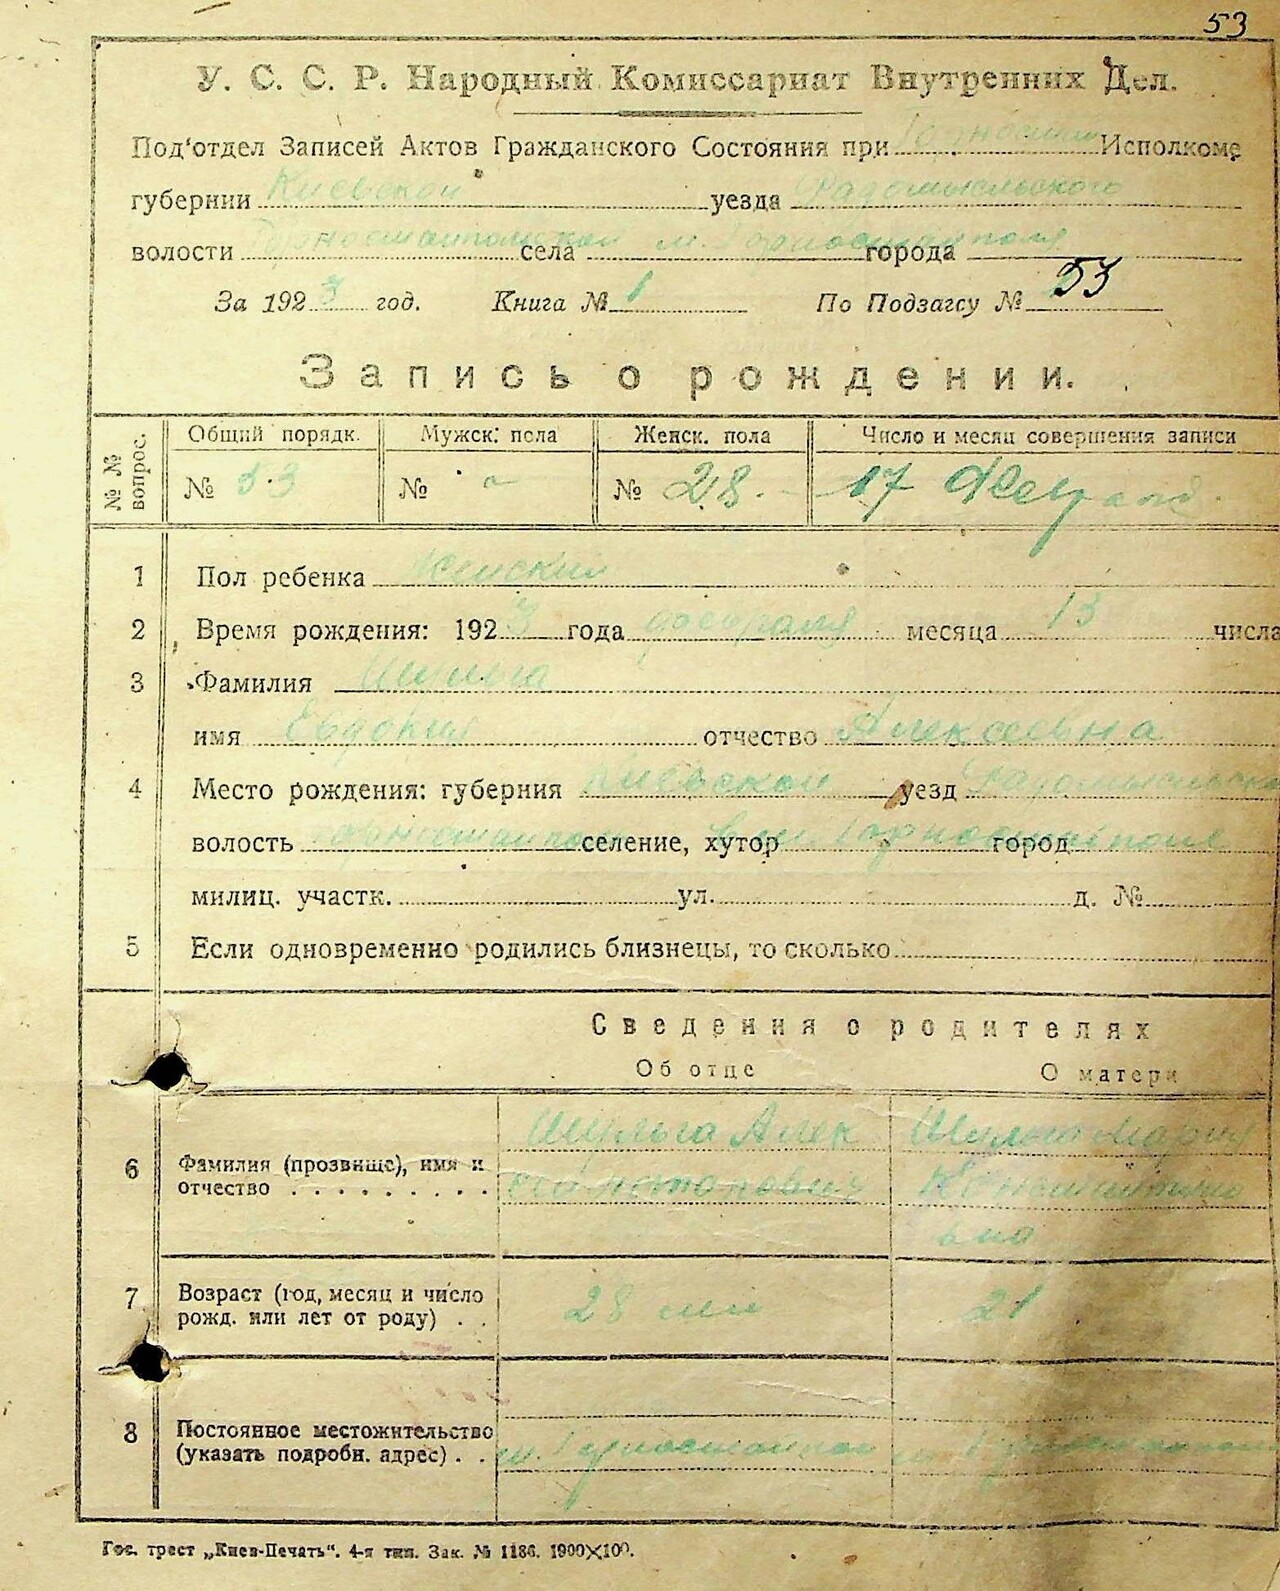 53
У. С. С. Р. Народный Комиссариат Внутренних Дел.
Под'отдел Записей Актов Гражданского Состояния при Исполкоме
губернии Киевской уезда Радомысльского
волости Горностайпольской м. Горностайполя села города
За 1923 год. Книга № 1 По Подзагсу № 53
Запись о рождении.
№ № вопрос. Общий порядк. Мужск. пола Женск. пола Число и месяц совершения записи
№ 53 № - № 28. 17 Февраля
1 Пол ребенка Женский
2 Время рождения: 1923 года февраля месяца 13 числа
3 Фамилия Шульга
имя Евдокия отчество Алексеевна
4 Место рождения: губерния Киевской уезд Радомысльска
волость Горностайпол селение, хутор в м. Горностайполе город
милиц. участк. ул. д. №
5 Если одновременно родились близнецы, то сколько
Сведения о родителях
Об отце О матери
Шульга Алек Шульга Мария
6 Фамилия (прозвище), имя и
отчество сей Константино
вна
7 Возраст (год, месяц и число
рожд. или лет от роду) 28 лет 21
8 Постоянное местожительство
(указать подробн. адрес) м. Горностайпол м. Горностайпол
Гос. трест „Киев-Печать“. 4-я тип. Зак. № 1186. 1900×100.